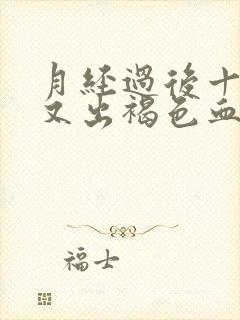 月經過後十
又出褐色血
福士